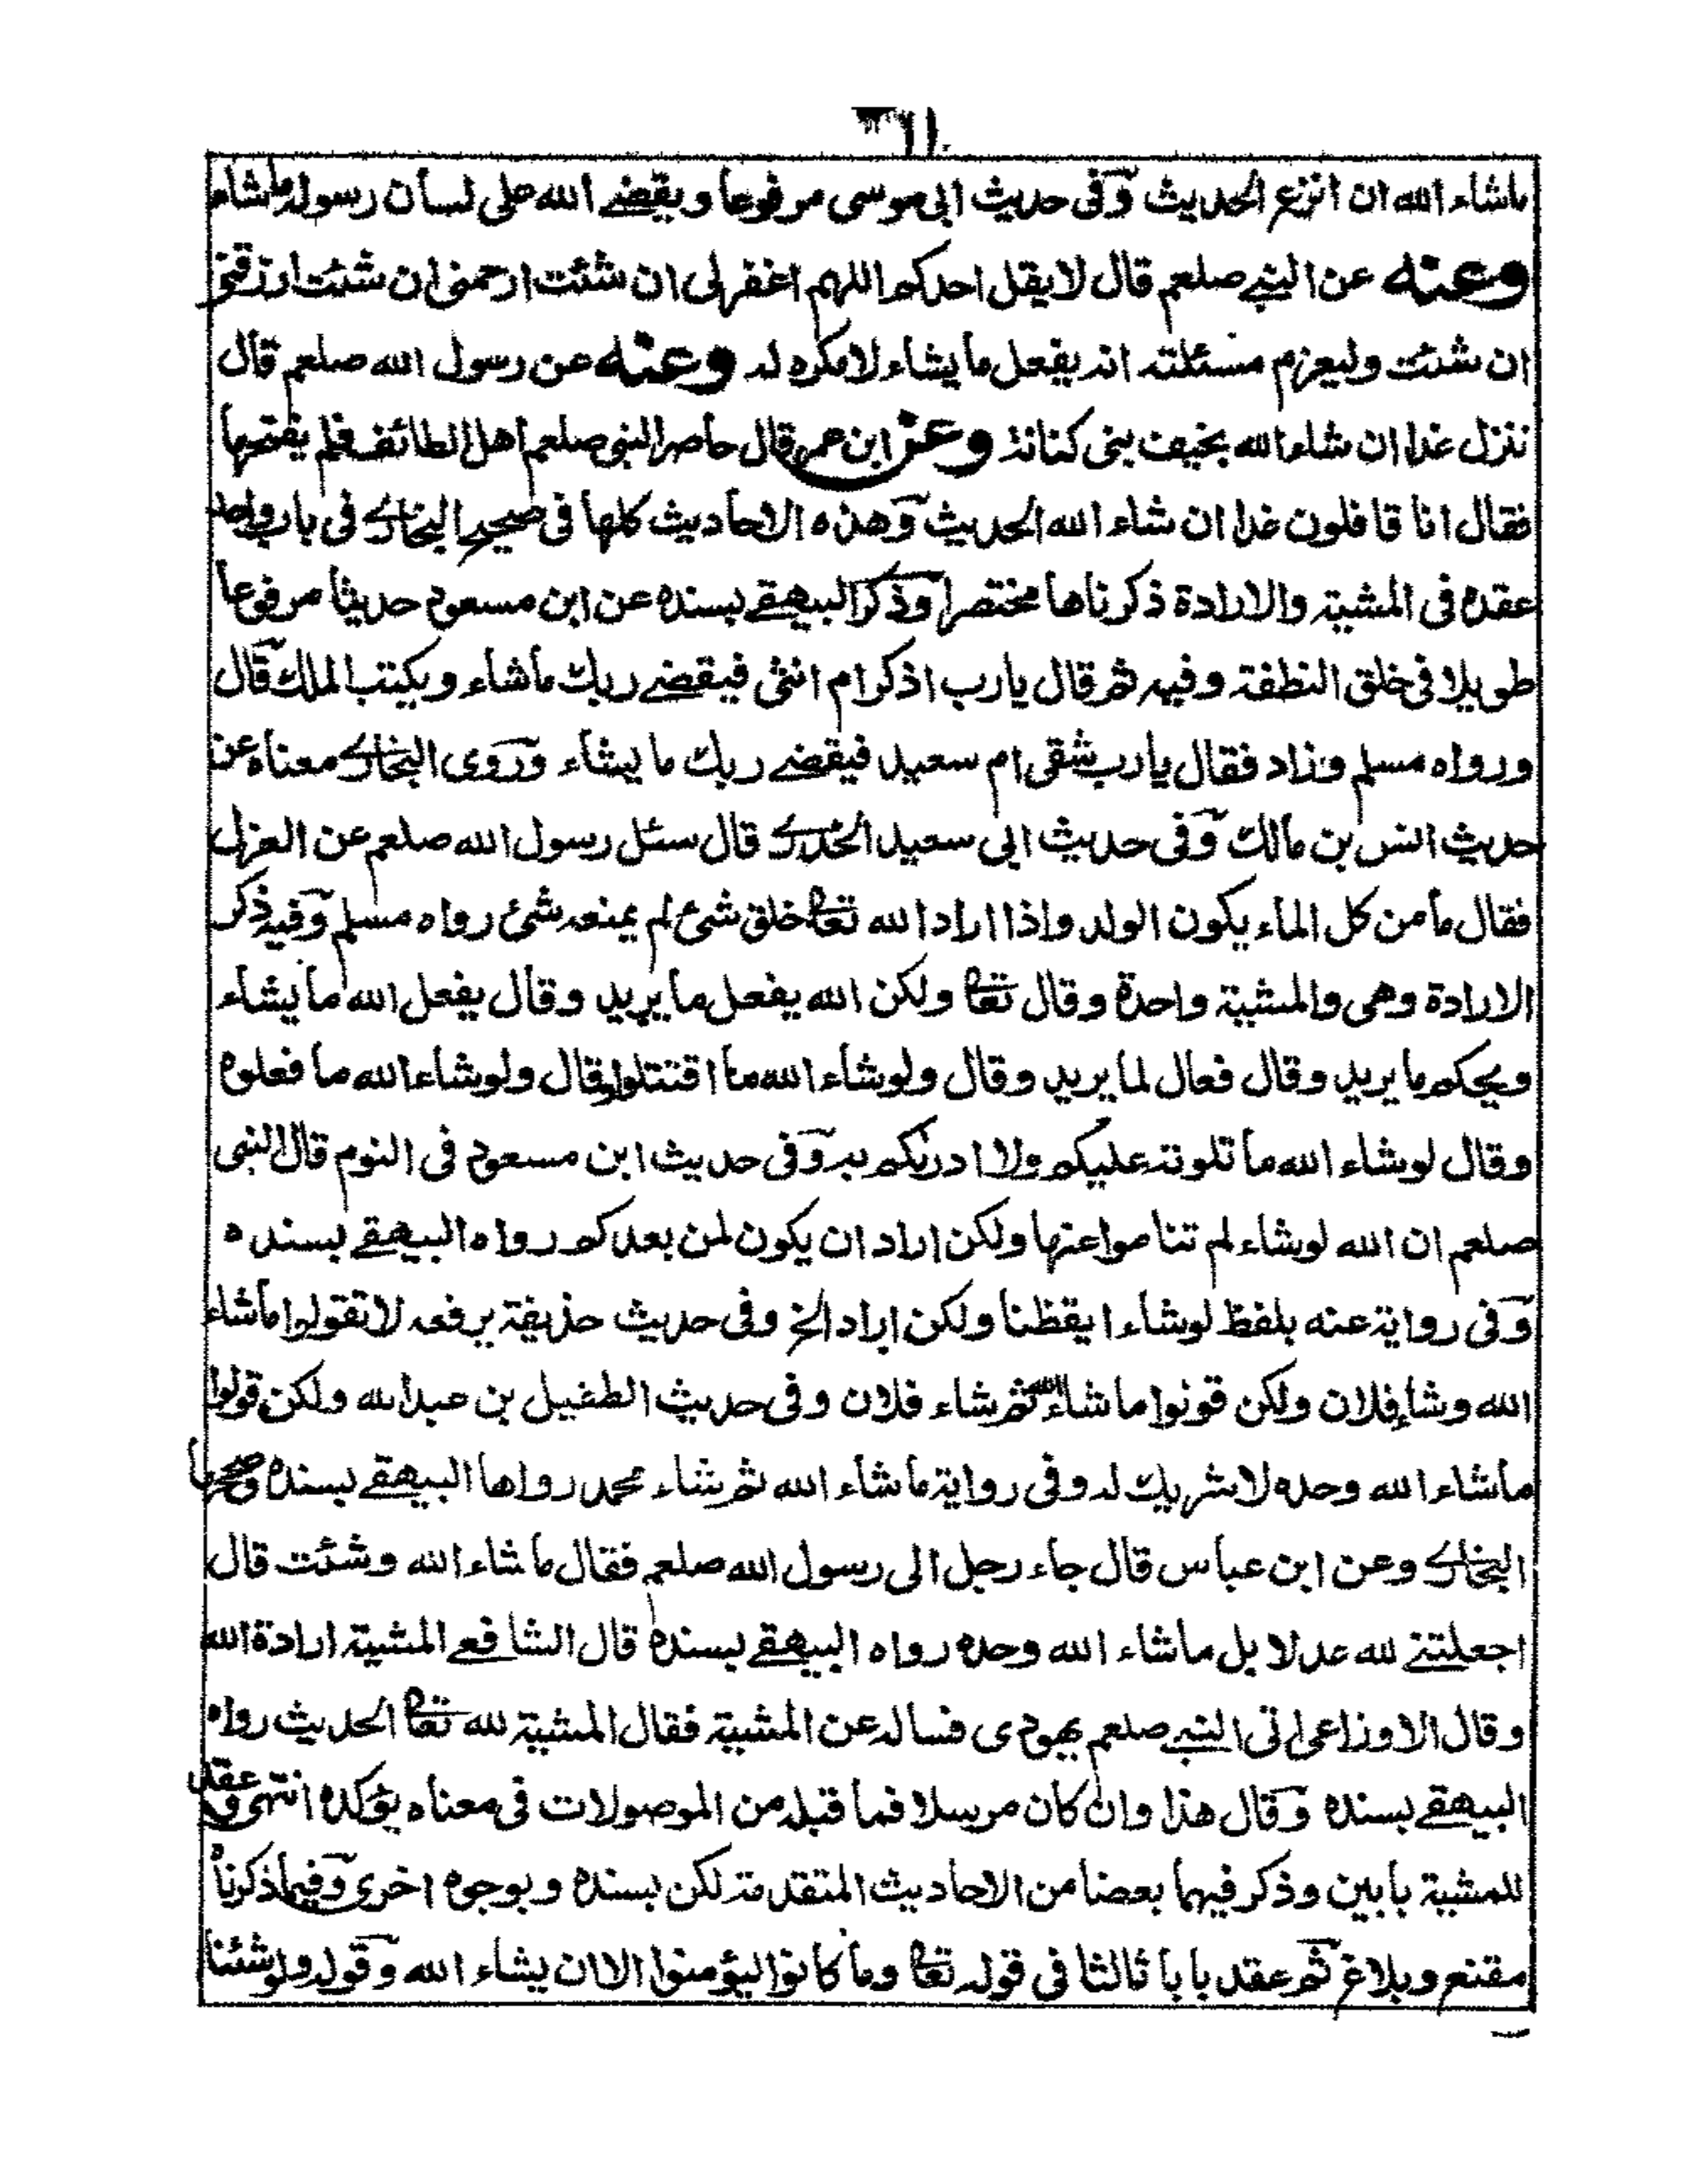 ماشاء الله ان انزع الحديث وفى حديث ابى موسى مرفوعا ويقضے الله على لسان رسوله ماشاء
وعنه عن النبے صلعم قال لا يقل احدكم اللهم اغفر لى ان شئت ارحمنى ان شئت ارزقنى
ان شئت وليعزم مسئلته انه يفعل ما يشاء لا مكره له وعنه عن رسول الله صلعم قال
ننزل غدا ان شاء الله بخيف بنى كنانة وعن ابن عمر قال حاصر النبى صلعم اهل الطائف فلم يفتحها
فقال انا قافلون غدا ان شاء الله الحديث وهذه الاحاديث كلها فى صحيح البخارے فى باب واحد
عقده فى المشية والارادة ذكرناها مختصرا وذكر البيهقے بسنده عن ابن مسعود حديثا مرفوعا
طويلا فى خلق النطفة وفيه ثم قال يارب اذكر ام انثى فيقضے ربك ماشاء ويكتب الملك قال
ورواه مسلم وزاد فقال يارب شقى ام سعيد فيقضے ربك ما يشاء وروى البخارے معناه عن
حديث انس بن مالك وفى حديث ابى سعيد الخدرے قال سئل رسول الله صلعم عن العزل
فقال ما من كل الماء يكون الولد واذا اراد الله تعا خلق شئ لم يمنعه شئ رواه مسلم وفيه ذكر
الارادة وهى والمشية واحدة وقال تعا ولكن الله يفعل ما يريد وقال يفعل الله ما يشاء
ويحكم ما يريد وقال فعال لما يريد وقال ولوشاء الله ما اقتتلوا وقال ولوشاء الله ما فعلوه
وقال لوشاء الله ما تلوته عليكم ولا ادرٰكم به وفى حديث ابن مسعود فى النوم قال النبى
صلعم ان الله لوشاء لم تناموا عنها ولكن اراد ان يكون لمن بعدكم رواه البيهقے بسنده
وفى رواية عنه بلفظ لوشاء ايقظنا ولكن اراد الخ وفى حديث حذيفة يرفعه لا تقولوا ماشاء
الله وشاء فلان ولكن قولوا ما شاء الله ثم شاء فلان وفى حديث الطفيل بن عبد الله ولكن قولوا
ماشاء الله وحده لا شريك له وفى رواية ما شاء الله ثم شاء محمد رواها البيهقے بسنده وصححها
البخارے وعن ابن عباس قال جاء رجل الى رسول الله صلعم فقال ما شاء الله وشئت قال
اجعلتنے لله عدلا بل ماشاء الله وحده رواه البيهقے بسنده قال الشافعے المشية ارادة الله
وقال الاوزاعى اتى النبے صلعم يهودى فساله عن المشية فقال المشية لله تعا الحديث رواه
البيهقے بسنده وقال هذا وان كان مرسلا فما قبله من الموصولات فى معناه يؤكده انتهى وعقد
للمشية بابين وذكر فيهما بعضا من الاحاديث المتقدمة لكن بسنده وبوجوه اخرى وفيما ذكرناه
مقنع وبلاغ ثم عقد بابا ثالثا فى قوله تعا وما كانوا ليؤمنوا الا ان يشاء الله وقوله ولو شئنا